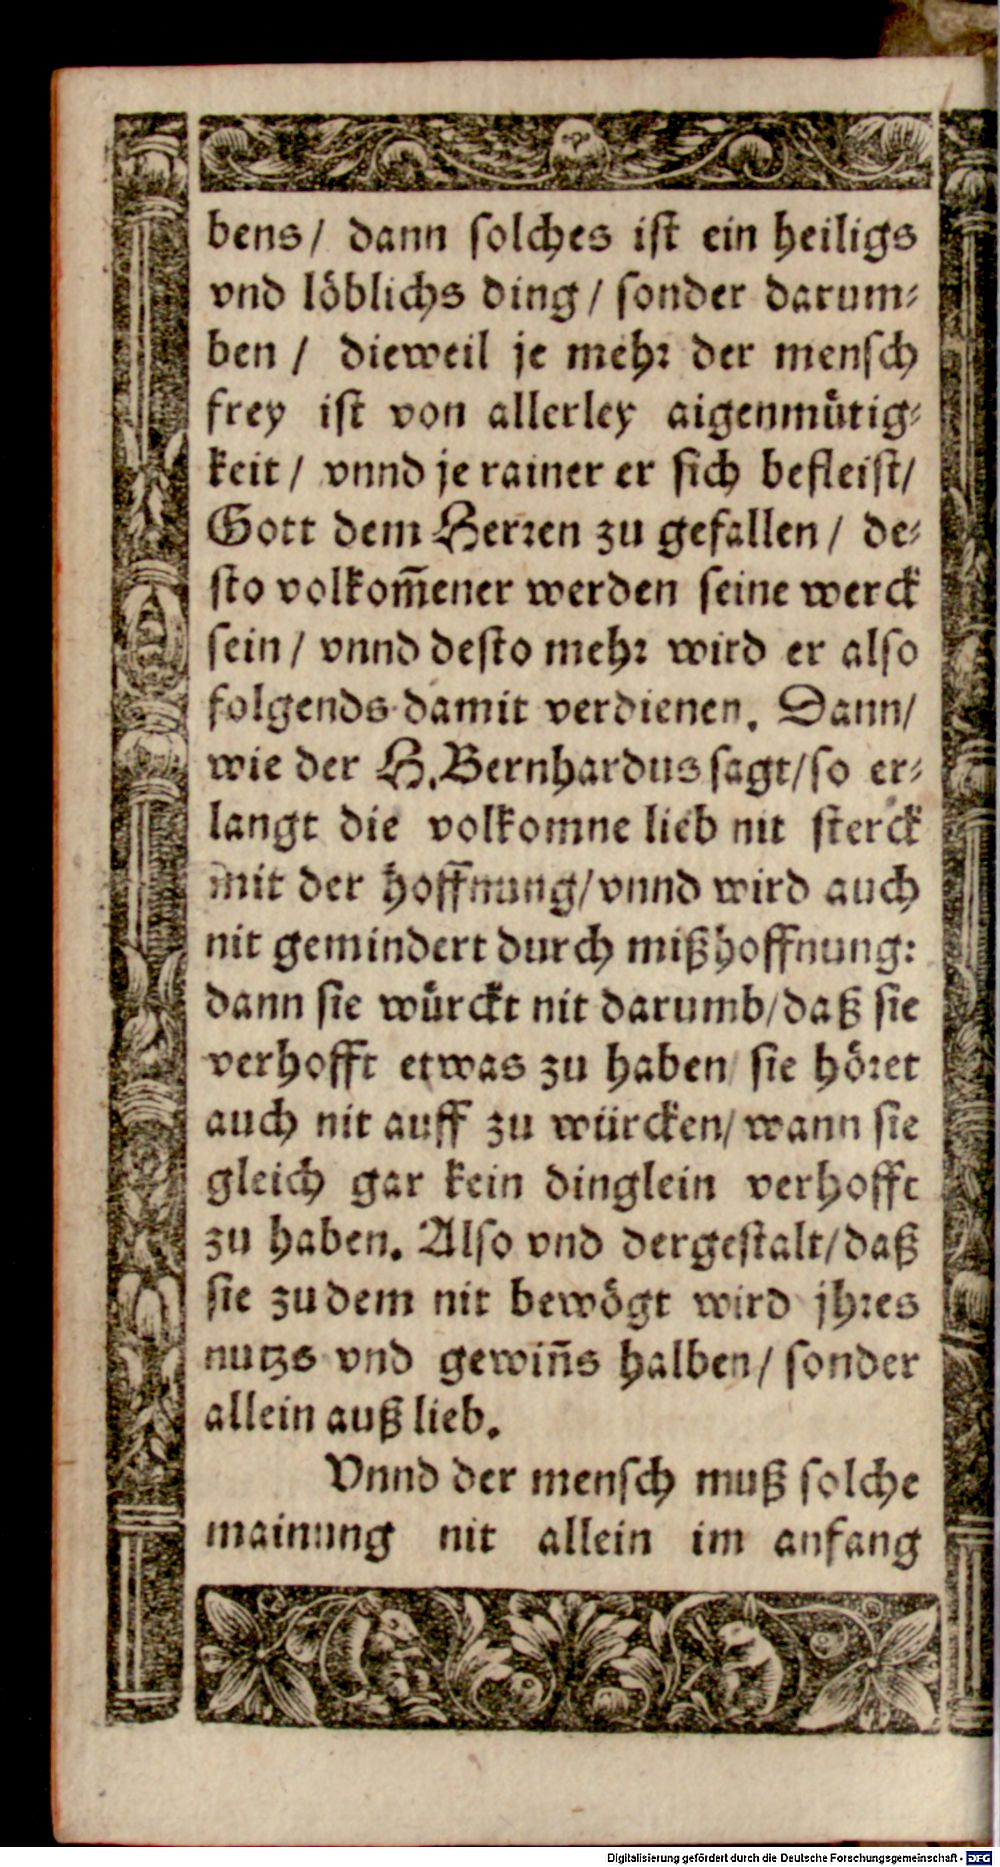 bens/ dann solches ist ein heiligs
vnd löblichs ding/ sonder darum-
ben/ dieweil je mehr der mensch
frey ist von allerley aigenmütig-
keit/ vnnd je rainer er sich befleist/
Gott dem Herren zu gefallen/ de-
sto volkom̃ener werden seine werck
sein/ vnnd desto mehr wird er also
folgends damit verdienen. Dann/
wie der H. Bernhardus sagt/ so er-
langt die volkomne lieb nit sterck
mit der hoffnung/ vnnd wird auch
nit gemindert durch mißhoffnung:
dann sie würckt nit darumb/ daß sie
verhofft etwas zu haben/ sie höret
auch nit auff zu würcken/ wann sie
gleich gar kein dinglein verhofft
zu haben. Also vnd dergestalt/ daß
sie zu dem nit bewögt wird jhres
nutzs vnd gewiñs halben/ sonder
allein auß lieb.
Vnnd der mensch muß solche
mainung nit allein im anfang
Digitalisierung gefördert durch die Deutsche Forschungsgemeinschaft - DFG